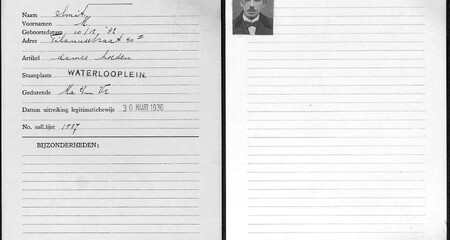 Naam Smit
Voornamen M
Geboortedatum 10/12 '02
Adres
Artikel dames hoeden
Staanplaats WATERLOOPLEIN.
Gedurende Ma t/m Vr
Datum uitreiking legitimatiebewijs 30 MAART 1936
No. soll.lijst 1937
BIJZONDERHEDEN: